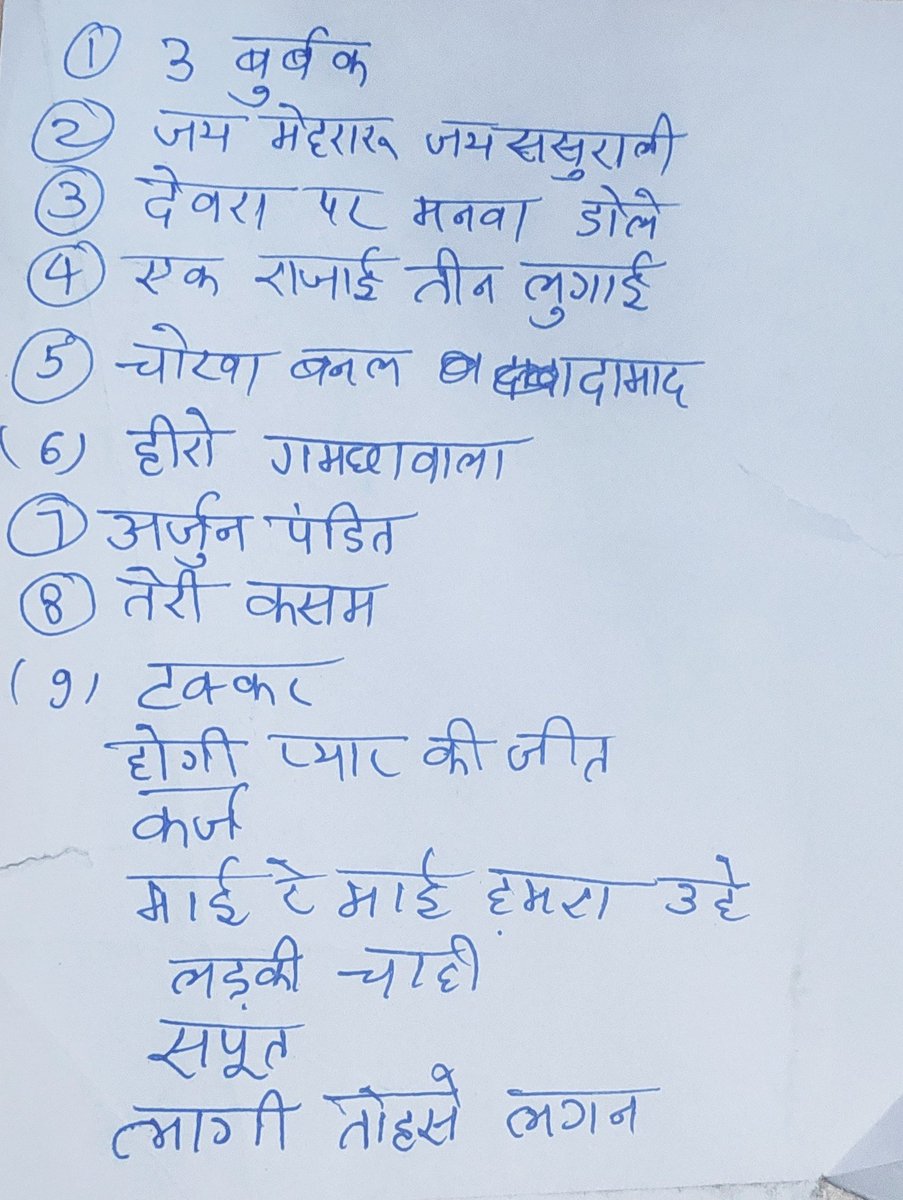 ① 3 बुर्बक
② जय मेहरारू जय ससुराली
③ देवरा पर मनवा डोले
④ एक राजाई तीन लुगाई
⑤ चोरवा बनल दामाद
(6) हीरो गमछावाला
⑦ अर्जुन पंडित
⑧ तेरी कसम
(9) टक्कर
होगी प्यार की जीत
कर्ज
माई रे माई हमरा उहे
लड़की चाही
सपूत
लागी तोहसे लगन